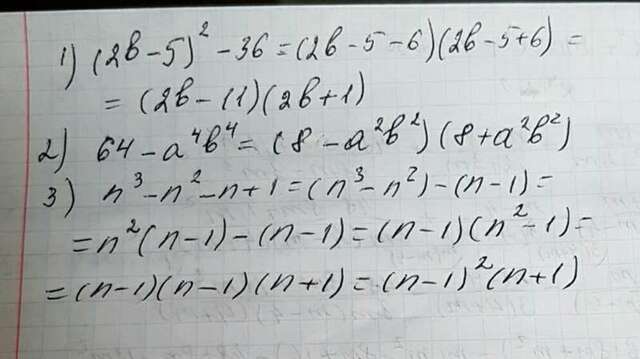 1) (2b-5)² - 36 = (2b-5-6)(2b-5+6) =
= (2b-11)(2b+1)
2) 64 - a⁴b⁴ = (8 - a²b²)(8 + a²b²)
3) n³-n²-n+1 = (n³-n²)-(n-1) =
= n²(n-1)-(n-1) = (n-1)(n²-1) =
= (n-1)(n-1)(n+1) = (n-1)²(n+1)